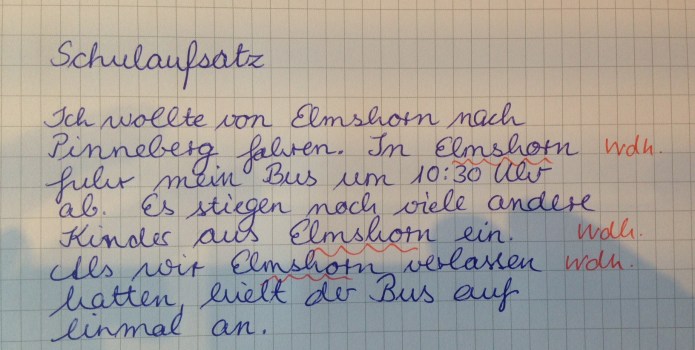 Schulaufsatz
Ich wollte von Elmshorn nach
Pinneberg fahren. In Elmshorn wdh.
fuhr mein Bus um 10:30 Uhr
ab. Es stiegen noch viele andere
Kinder aus Elmshorn ein. wdh.
Als wir Elmshorn verlassen wdh.
hatten, hielt der Bus auf
einmal an.